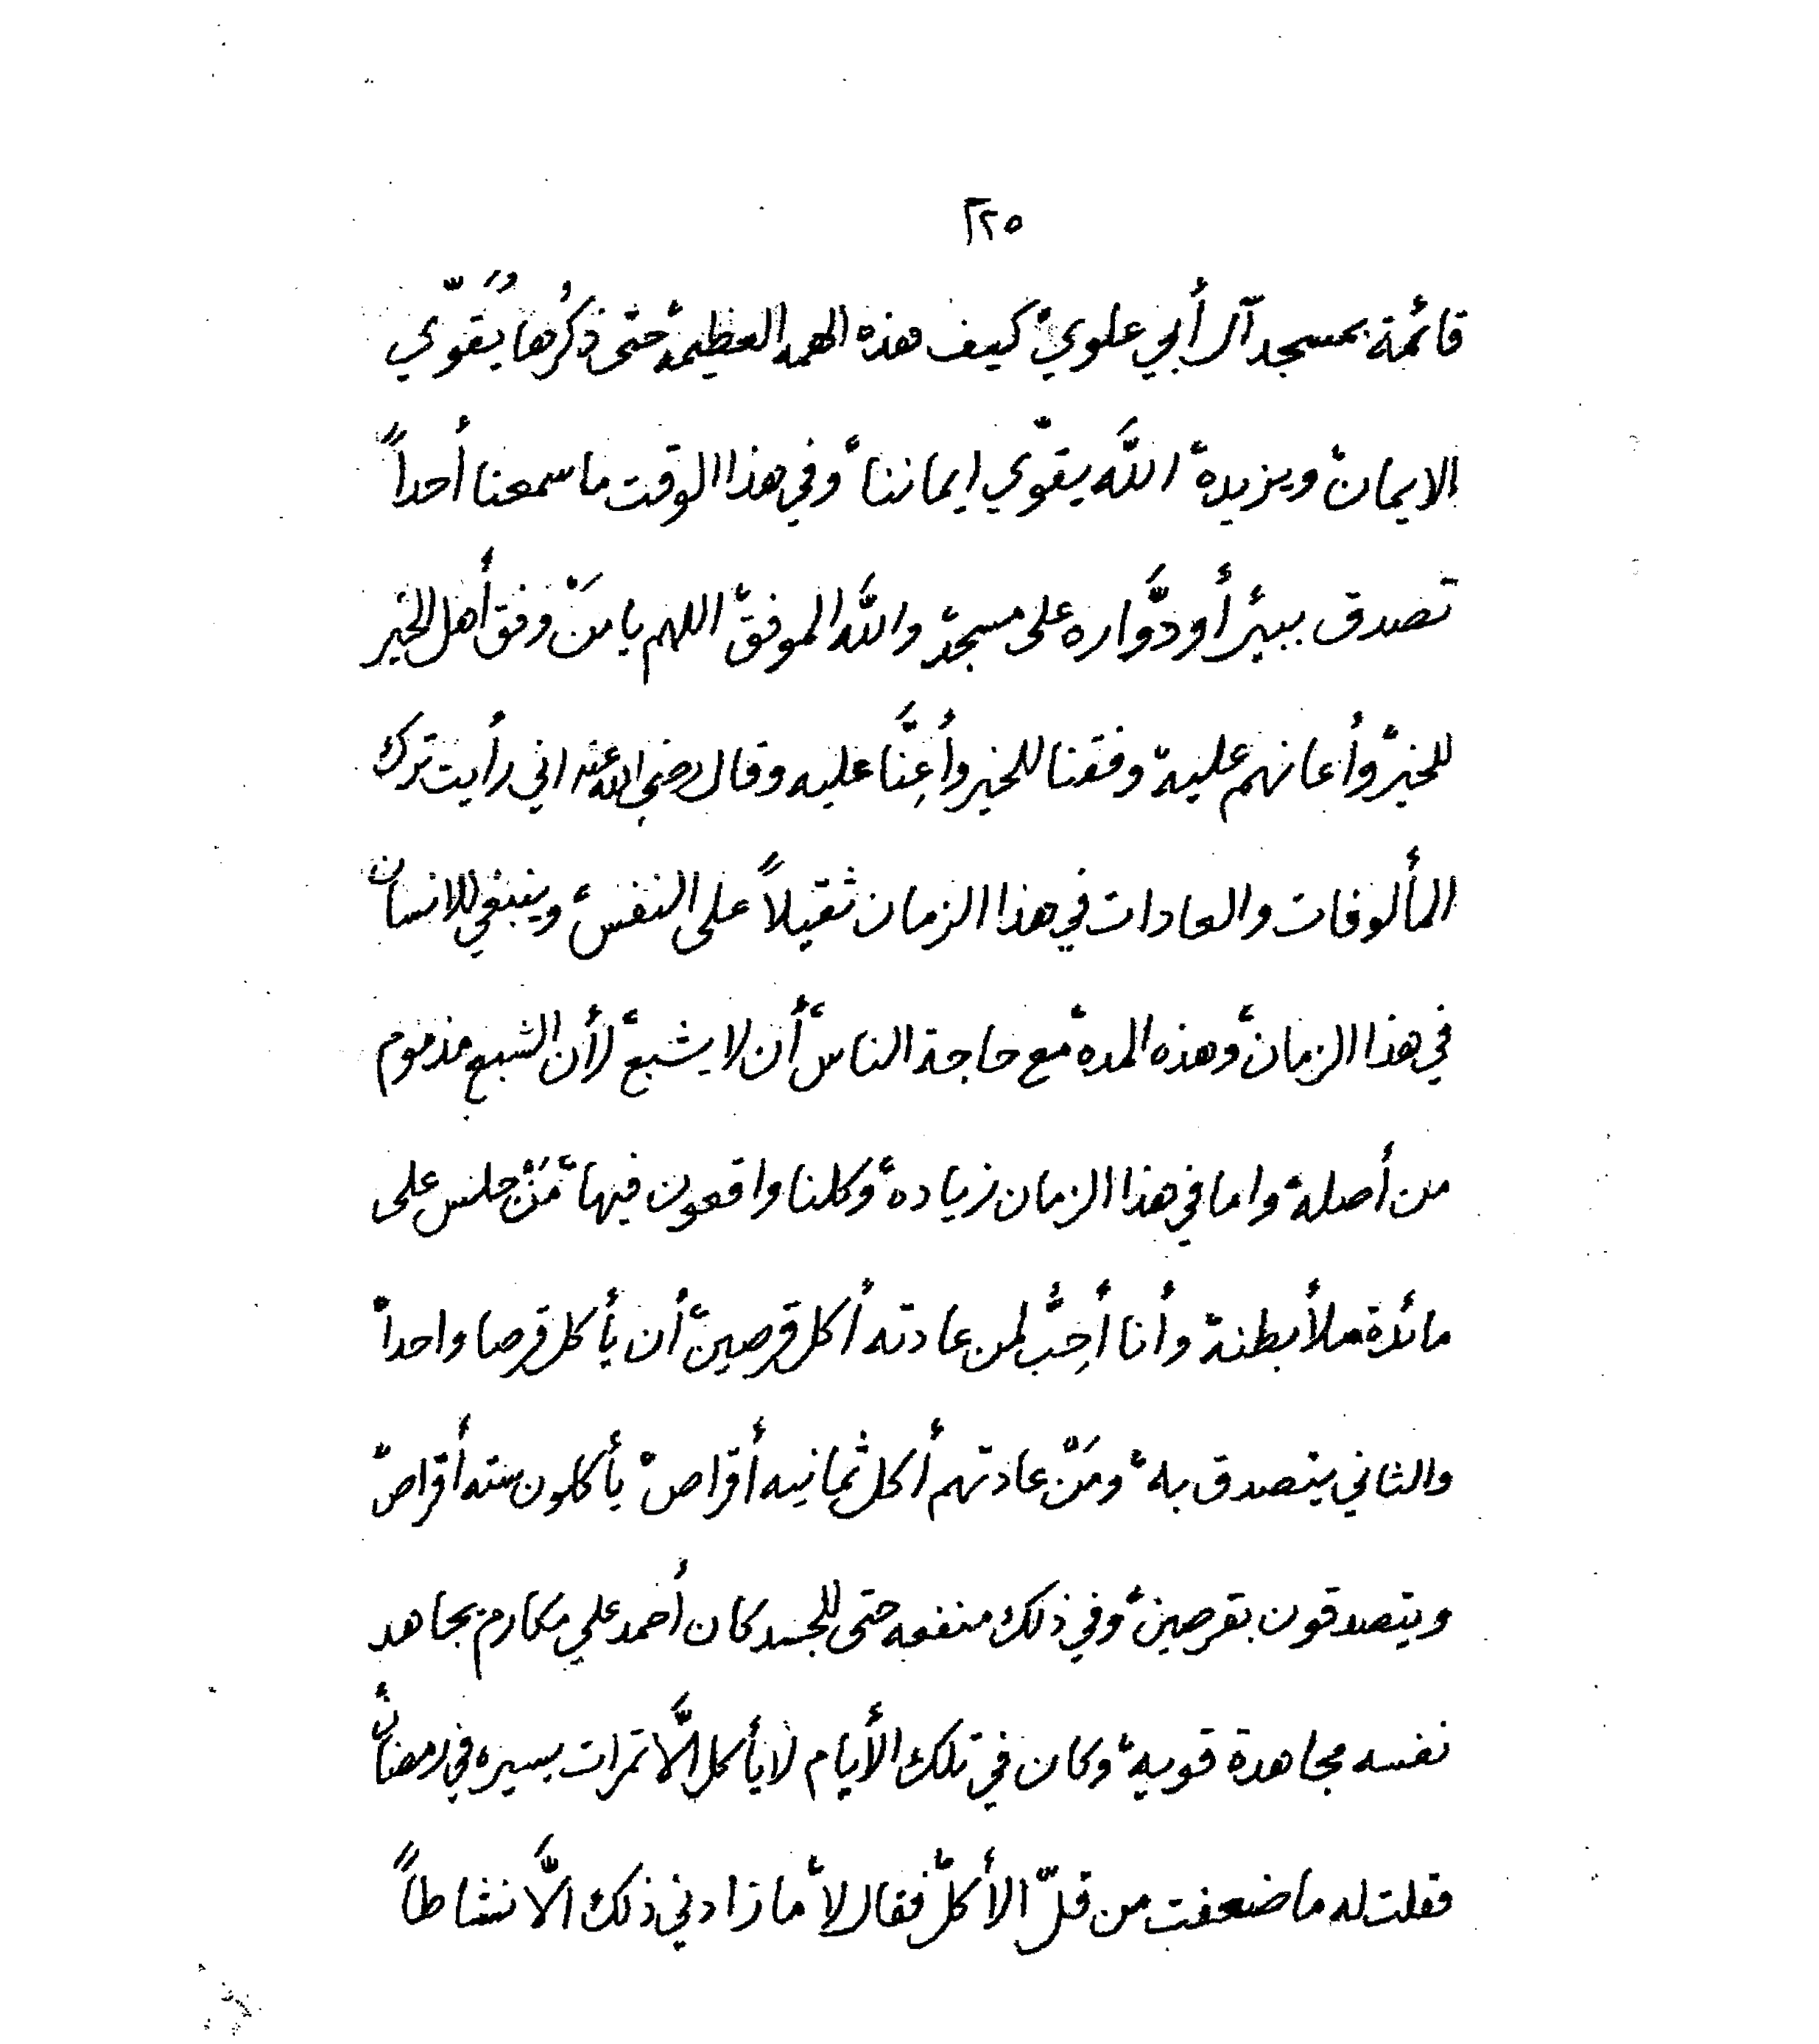 ٢٢٥
قائمة بمسجد آل أبي علوي، كيف هذه الهمه العظيمه، حتى ذكرُها يُقوّي
الايمان، ويزيده، اللَّه يقوّي ايماننا، وفي هذا الوقت ما سمعنا أحداً
تصدق ببئر أو دوَّاره على مسجد، واللَّه الموفق، اللهم يا مَنْ وفق أهل الخير
للخير، وأعانهم عليه، وفقنا للخير وأعِنَّا عليه وقال رضي الله عنه اني رأيت ترك
المألوفات والعادات في هذا الزمان ثقيلاً على النفس، وينبغي للانسان
في هذا الزمان، وهذه المده، مع حاجة الناس، أن لا يشبع، لأن الشبع مذموم
من أصله، واما في هذا الزمان زياده، وكلنا واقعون فيها، مَنْ جلس على
مائدة ملأ بطنه، وأنا أُحِبُّ لمن عادته أكل قرصين، أن يأكل قرصا واحداً
والثاني يتصدق به، ومَنْ عادتهم أكل ثمانيه أقراص، يأكلون سته أقراص،
ويتصدقون بقرصين، وفي ذلك منفعه حتى للجسد كان أحمد علي مكارم يجاهد
نفسه مجاهدة قويه، وكان في تلك الأيام لا يأكل الَّا تمرات يسيره في رمضان،
فقلت له ما ضعفت من قلّ الأكل، فقال لا، ما زادني ذلك الَّا نشاطاً